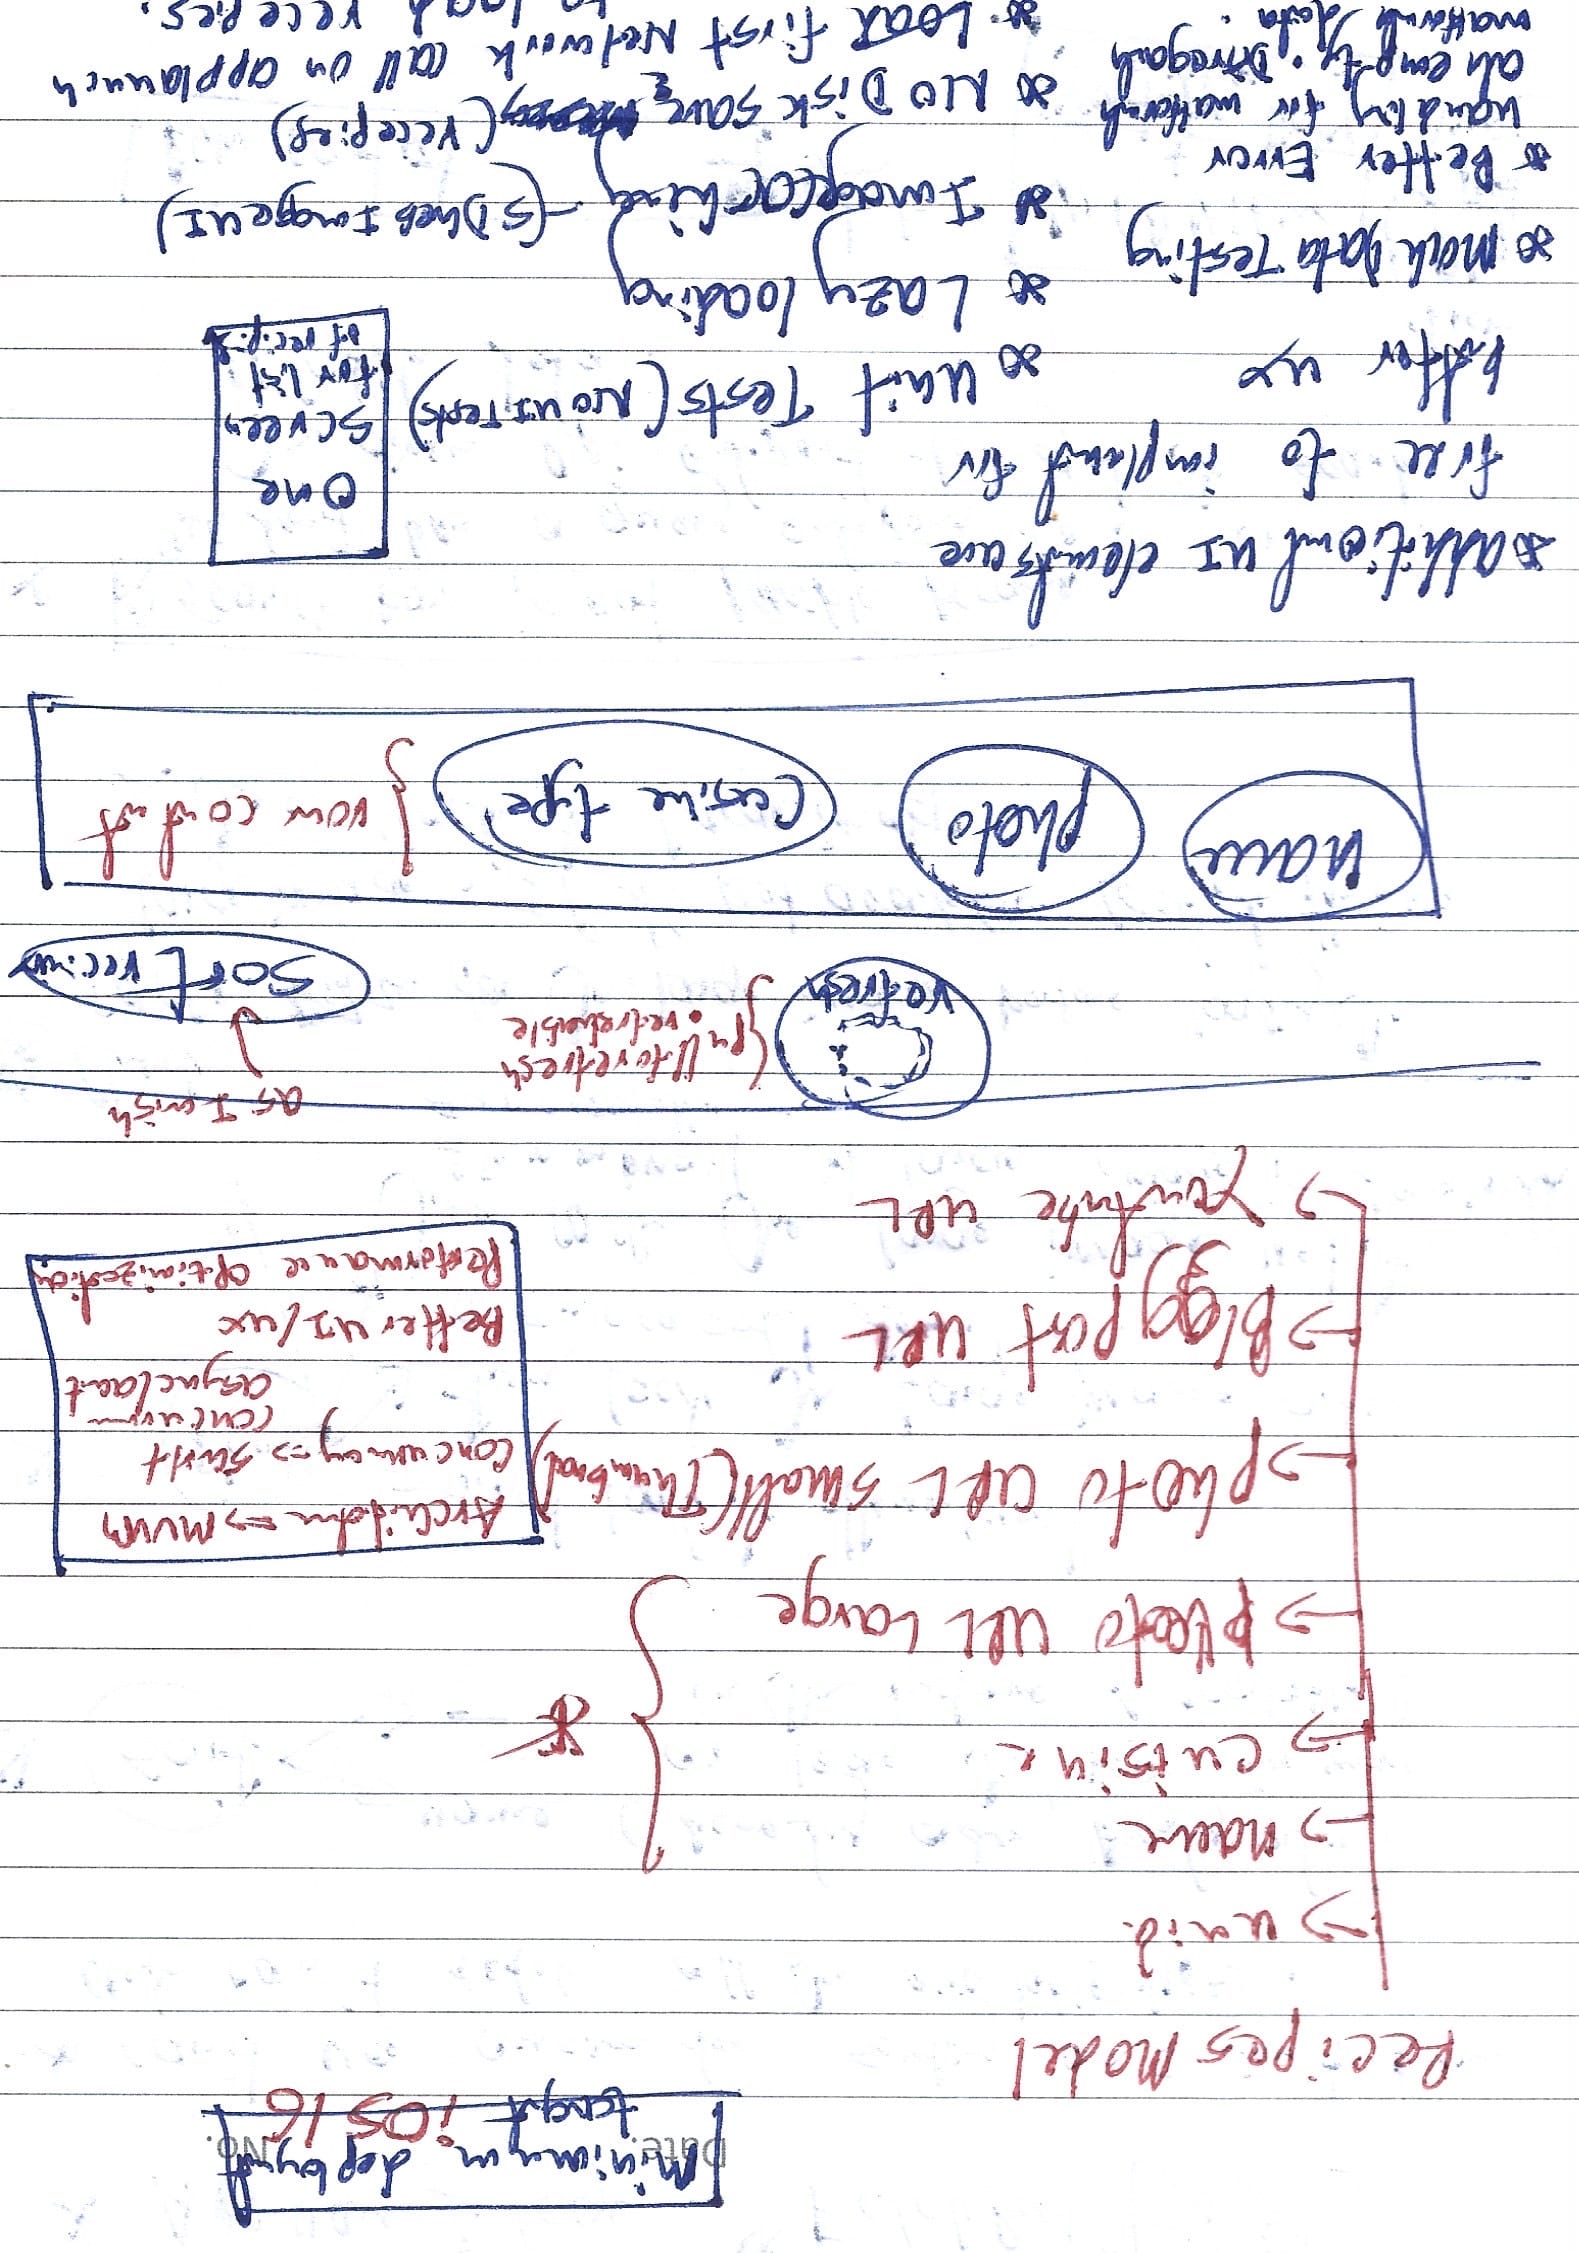 Date. No.
Minimum deployment
target iOS 16
Recipes Model
→ uuid
→ name
→ cuisine
→ photo URL Large
→ photo URL small (Thumbnail)
→ Blog post URL
→ Youtube URL
Architecture => MVVM
Concurrency => swift
concurren
async/await
Better UI/UX
Performance Optimization
refresh
pull to refresh
.refreshable
as I wish
sort recipies
name
photo
Cusine type
row contents
* additional UI elements are
free to implement for
better ux
* Mock Data Testing
* Better Error
handling for malformed
an empty. Disregard
malformed data.
One
screen
for list
of recipies
* Unit Tests (NO UI Tests)
* Lazy loading
* Image caching - (SDWebImageUI)
* NO Disk save (recepies)
* Load first Network call on app launch
to load recepies.